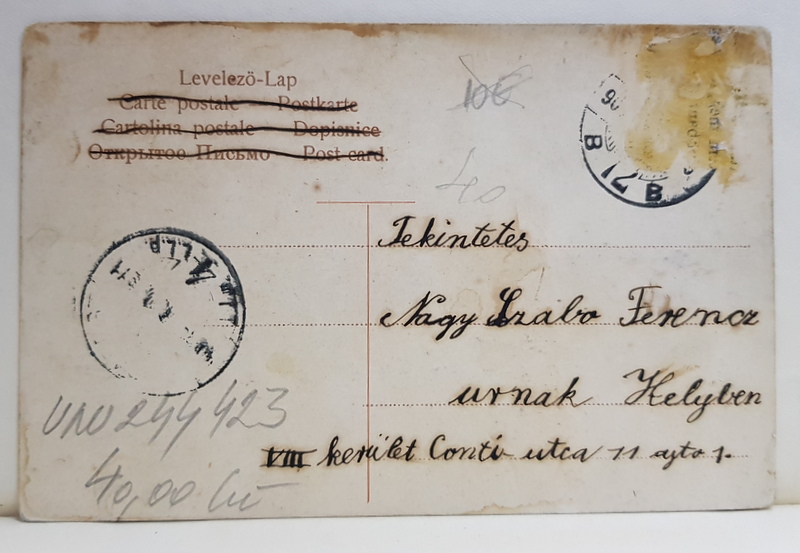 Levelezö-Lap
Carte postale Postkarte
Cartolina postale Dopisnice
Открытое Письмо Post-card.
40
B
B
Tekintetes
Nagy Szabo Ferencz
urnak Helyben
VIII kerület Conti utca 11 ajto 1.
244423
40,00